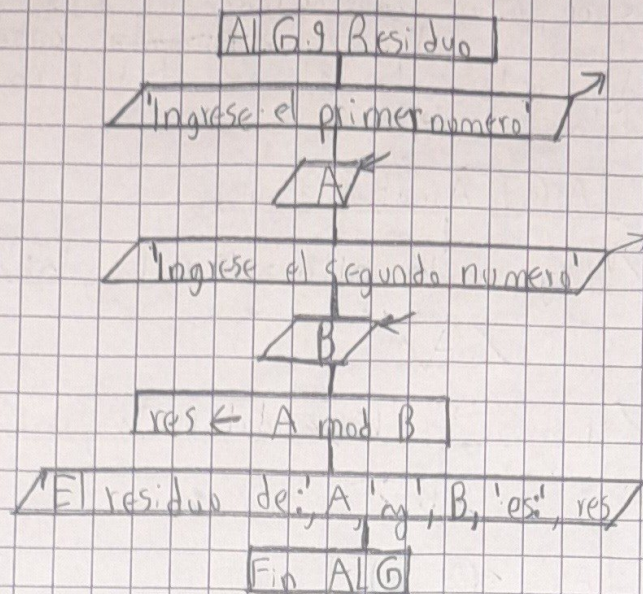 ALG.9 Residuo
'Ingrese el primer numero'
A
'Ingrese el segundo numero'
B
res ← A mod B
'El residuo de:', A, 'y', B, 'es:', res
Fin ALG